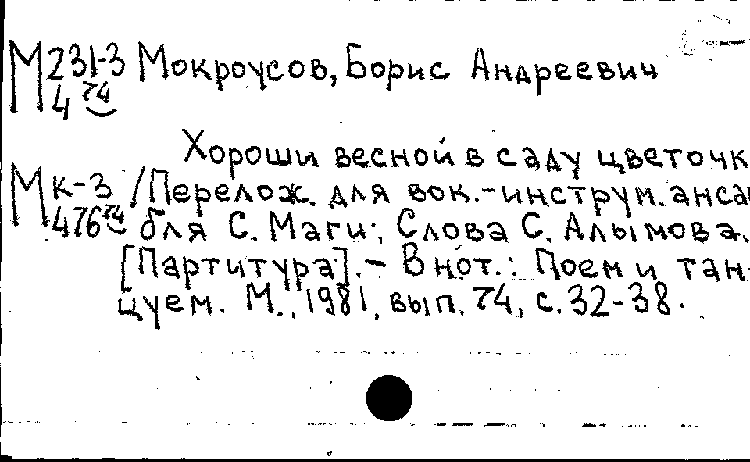 М 231-3 Мокроусов, Борис Андреевич
4 74
Хороши весной в саду цветочк
М к-3 / Перелож. для вок.-инструм. анса
476 74 бля С. Маги; Слова С. Алымова.
[Партитура]. - В нот.: Поем и тан-
цуем. М., 1981, вып. 74, с. 32-38.